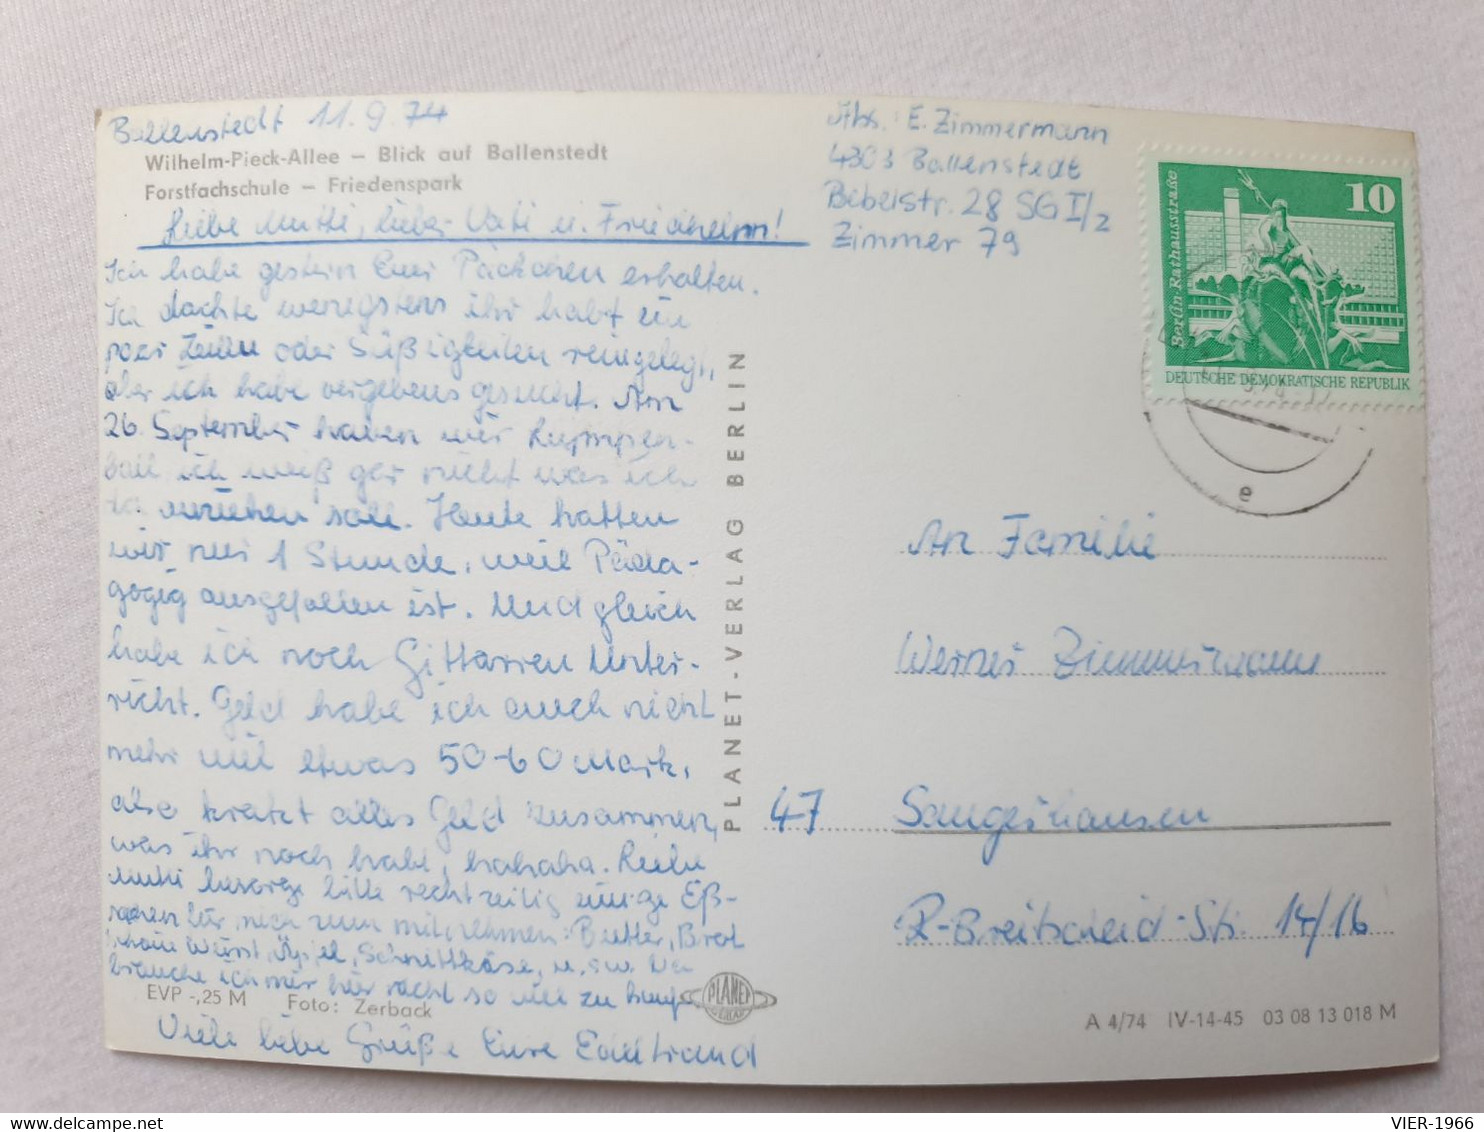 Ballenstedt 11.9.74
Wilhelm-Pieck-Allee – Blick auf Ballenstedt
Forstfachschule – Friedenspark
Liebe Mutti, lieber Vati u. Friedhelm!
Ich habe gestern Euer Päckchen erhalten.
Ich dachte wenigstens ihr habt ein
paar Zeilen oder Süßigkeiten reingelegt,
aber ich habe vergebens gesucht. Am
26. September haben wir Lumpen-
ball ich weiß gar nicht was ich
da anziehen soll. Heute hatten
wir nur 1 Stunde, weil Päda-
gogig ausgefallen ist. Und gleich
habe ich noch Gittarren Unter-
richt. Geld habe ich auch nicht
mehr viel etwas 50-60 Mark,
also kratzt alles Geld zusammen,
was ihr noch habt, hahaha. Liebe
Mutti besorge bitte rechtzeitig einige Eß-
sachen für mich zum mitnehmen: Butter, Brot
Wurst, Äpfel, Schmittkäse, u.s.w. Da
brauche ich mir hier nicht so viel zu kaufen
EVP -,25 M Foto: Zerback
Viele liebe Grüße Eure Edeltraud
PLANET-VERLAG BERLIN
PLANET
VERLAG
Abs.: E. Zimmermann
4303 Ballenstedt
Bebelstr. 28 SG I/2
Zimmer 79
10
Berlin-Rathausstraße
DEUTSCHE DEMOKRATISCHE REPUBLIK
e
An Familie
Werner Zimmermann
47 Sangerhausen
R-Breitscheid-Str. 14/16
A 4/74 IV-14-45 03 08 13 018 M
VIER-1966